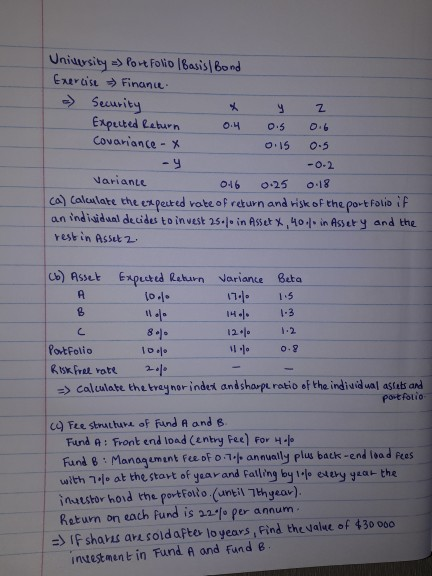 University => Portfolio | Basis | Bond
Exercise => Finance.
=> Security X Y Z
Expected Return 0.4 0.5 0.6
Covariance - X 0.15 0.5
- Y -0.2
Variance 0.16 0.25 0.18
(a) Calculate the expected rate of return and risk of the portfolio if
an individual decides to invest 25.% in Asset X, 40.% in Asset Y and the
rest in Asset Z.
(b) Asset Expected Return Variance Beta
A 10.% 17% 1.5
B 11.% 14% 1.3
C 8% 12% 1.2
Portfolio 10% 11% 0.8
Risk free rate 2% — —
=> Calculate the treynor index and sharpe ratio of the individual assets and
portfolio
(c) Fee structure of Fund A and B.
Fund A : Front end load (entry fee) For 4%
Fund B : Management fee of 0.7% annually plus back-end load fees
with 7% at the start of year and falling by 1% every year the
investor hold the portfolio. (until 7th year).
Return on each fund is 22% per annum.
=> If shares are sold after 10 years, find the value of $30 000
investment in Fund A and Fund B.